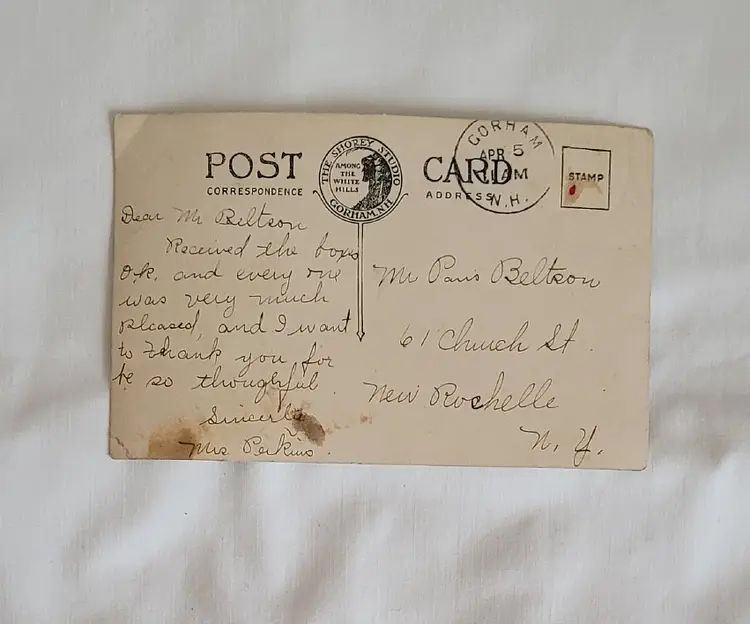 POST CARD
CORRESPONDENCE
ADDRESS
THE SHOREY STUDIO
AMONG
THE
WHITE
HILLS
GORHAM, N.H.
GORHAM
APR 5
M
N.H.
STAMP
Dear Mr Beltson
Received the boxes
O.K. and every one
was very much
pleased, and I want
to thank you for
be so thoughtful
Sincerly
Mrs Perkins.
Mr Paris Beltson
61 Church St.
New Rochelle
N. Y.